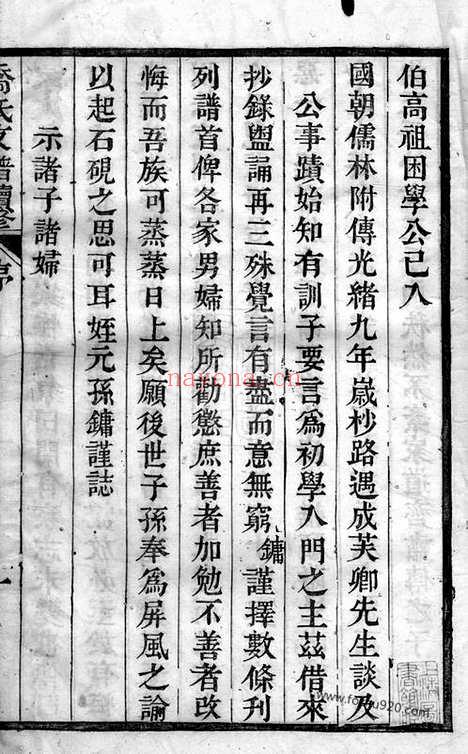 伯高祖困學公已入
國朝儒林附傳光緒九年嵗杪路遇成芙卿先生談及
公事蹟始知有訓子要言爲初學入門之主茲借來
抄錄盥誦再三殊覺言有盡而意無窮鏞謹擇數條刋
列譜首俾各家男婦知所勸懲庶善者加勉不善者改
悔而吾族可蒸蒸日上矣願後世子孫奉爲屏風之論
以起石硯之思可耳姪元孫鏞謹誌
示諸子諸婦
喬氏支譜續修
序
一
nayona.cn